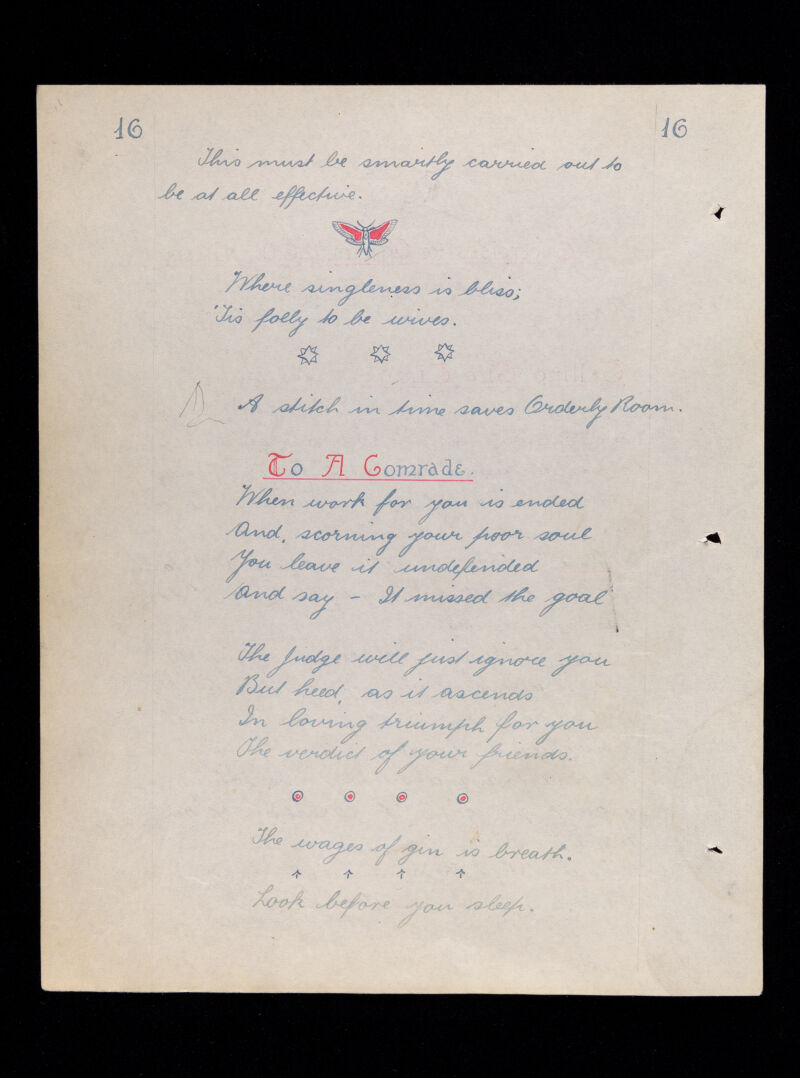 16 16
This must be smartly carried out to
be at all effective.
Where singleness is bliss;
'Tis folly to be wives.
A stitch in time saves Orderly Room.
To A Comrade.
When work for you is ended
And, scorning your poor soul
You leave it undefended
And say - It missed the goal
The Judge will just ignore you
But heed, as it ascends
In loving triumph for you
The verdict of your friends.
The wages of gin is breath.
Look before you sleep.